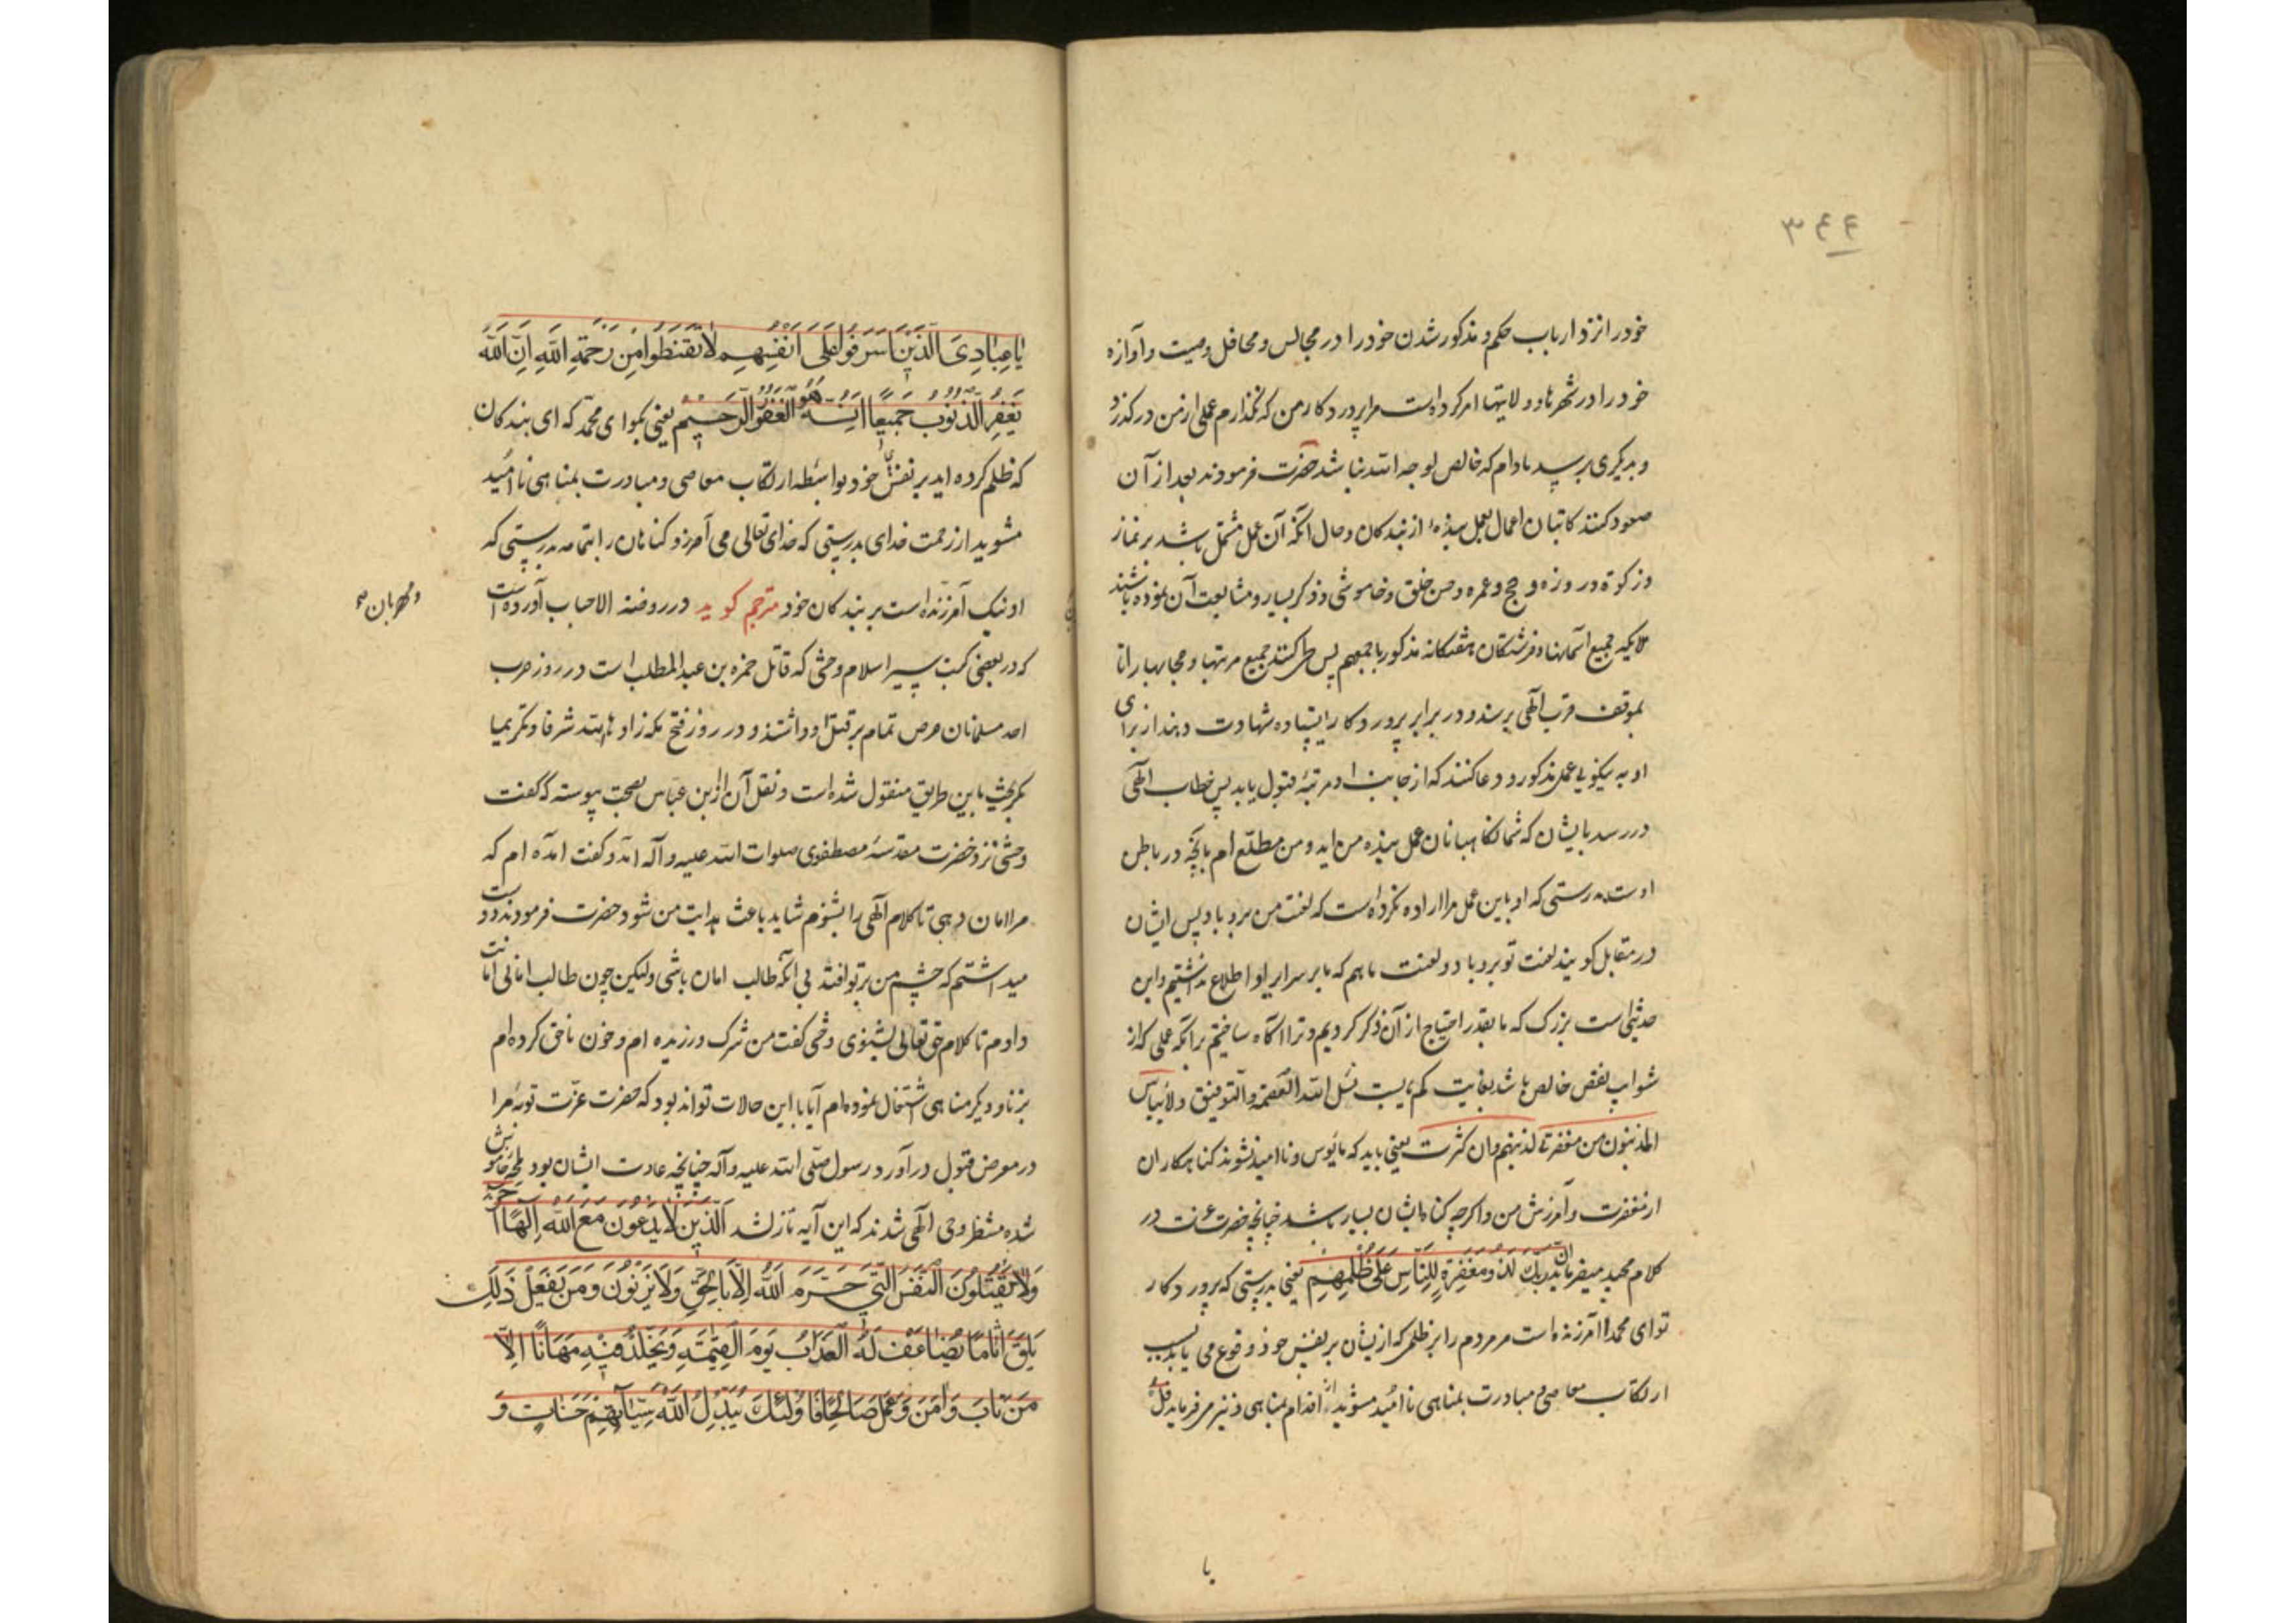 ۳۴۴
خود را نزد ارباب حکم و مذکور شدن خود را در مجالس و محافل وصیت و آوازه
خود را در شهرها و ولایتها امر کرده است مرا پروردکار من که نکذارم عملی از من درکذرد
و بدیکری برسد مادام که خالص لوجه الله نباشد حضرت فرمودند بعد از آن
صعود کنند کاتبان اعمال بعمل بندهٔ از بندکان و حال آنکه آن عمل مشتمل باشد بر نماز
و زکوة و روزه و حج و عمره و حسن خلق و خاموشی و ذکر بسیار و مشایعت آن نموده باشند
ملایکه جمیع آسمانها و فرشتکان هفتکانه مذکور باجمعهم پس طی کنند جمیع مرتبها و حجابها را تا
بموقف قرب الهی برسند و در برابر پروردکار ایستاده شهادت دهند از برای
او به نیکویی عمل مذکور و دعا کنند که از جانب او مرتبهٔ قبول یابد پس خطاب الهی
در رسد بایشان که شما نکاهبانان عمل بنده من اید و من مطلع ام بآنچه در باطن
اوست بدرستی که او باین عمل مرا اراده نکرده است که لعنت من برو باد پس ایشان
در مقابل کویند لعنت تو برو باد و لعنت ما هم که ما بر سرایر او اطلاع نداشتیم و این
حدیثی است بزرک که ما بقدر احتیاج از آن ذکر کردیم و ترا آکاه ساختیم برآنکه عملی که از
شوایب نقص خالص باشد بغایت کمیابست نسئل الله العصمة والتوفیق ولا ییاس
المذنبون من مغفرتی لذنبهم وان کثرت یعنی باید که مایوس و ناامید نشوند کناهکاران
از مغفرت و آمرزش من و اکرچه کناه ایشان بسیار باشد چنانچه حضرت عزت در
کلام مجید میفرماید ان ربک لذو مغفرة للناس علی ظلمهم یعنی بدرستی که پروردکار
تو ای محمد آمرزنده است مر مردم را بر ظلمی که از یشان بر نفس خود وقوع می یابد بسبب
ارتکاب معاصی و مبادرت بمناهی ناامید مشوید از اقدام بمناهی و نیز میفرماید قل
یا
یَا عِبَادِیَ الَّذِینَ اَسْرَفُوا عَلَی اَنْفُسِهِمْ لَا تَقْنَطُوا مِنْ رَحْمَةِ اللَّهِ اِنَّ اللَّهَ
یَغْفِرُ الذُّنُوبَ جَمِیعًا اِنَّهُ هُوَ الْغَفُورُ الرَّحِیمُ یعنی بکو ای محمد که ای بندکان
که ظلم کرده اید بر نفس خود بواسطه ارتکاب معاصی و مبادرت بمناهی ناامید
مشوید از رحمت خدای بدرستی که خدای تعالی می آمرزد کناهان را بتمامه بدرستی که
او نیک آمرزنده است بر بندکان خود مترجم کوید در روضة الاحباب آورده است
و مهربان
که در بعضی کتب سیر اسلام وحشی که قاتل حمزه بن عبدالمطلب است در روز حرب
احد مسلمانان حرص تمام بر قتل او داشتند و در روز فتح مکه زادها الله شرفا و تکریما
بکریخت باین طریق منقول شده است و نقل آن از ابن عباس بصحت پیوسته که گفت
وحشی نزد حضرت مقدسهٔ مصطفوی صلوات الله علیه و آله آمد و کفت آمده ام که
مرا امان دهی تا کلام الهی را بشنوم شاید باعث هدایت من شود حضرت فرمودند دوست
میداشتم که چشم من بر تو افتد بی آنکه طالب امان باشی ولیکن چون طالب امانی امانت
دادم تا کلام حق تعالی بشنوی وحشی کفت من شرک ورزیده ام و خون ناحق کرده ام
بزنا و دیکر مناهی اشتغال نموده ام آیا با این حالات تواند بود که حضرت عزت توبهٔ مرا
در معرض قبول درآورد رسول صلی الله علیه و آله چنانچه عادت ایشان بود لمحه خاموش
شده منتظر وحی الهی شدند که این آیه نازل شد الَّذِینَ لَا یَدْعُونَ مَعَ اللَّهِ اِلَهًا آخَرَ
وَلَا یَقْتُلُونَ النَّفْسَ الَّتِی حَرَّمَ اللَّهُ اِلَّا بِالْحَقِّ وَلَا یَزْنُونَ وَمَنْ یَفْعَلْ ذَلِکَ
یَلْقَ اَثَامًا یُضَاعَفْ لَهُ الْعَذَابُ یَوْمَ الْقِیٰمَةِ وَیَخْلُدْ فِیهِ مُهَانًا اِلَّا
مَنْ تَابَ وَآمَنَ وَعَمِلَ صَالِحًا فَاُولٰئِکَ یُبَدِّلُ اللَّهُ سَیِّآتِهِمْ حَسَنَاتٍ وَ